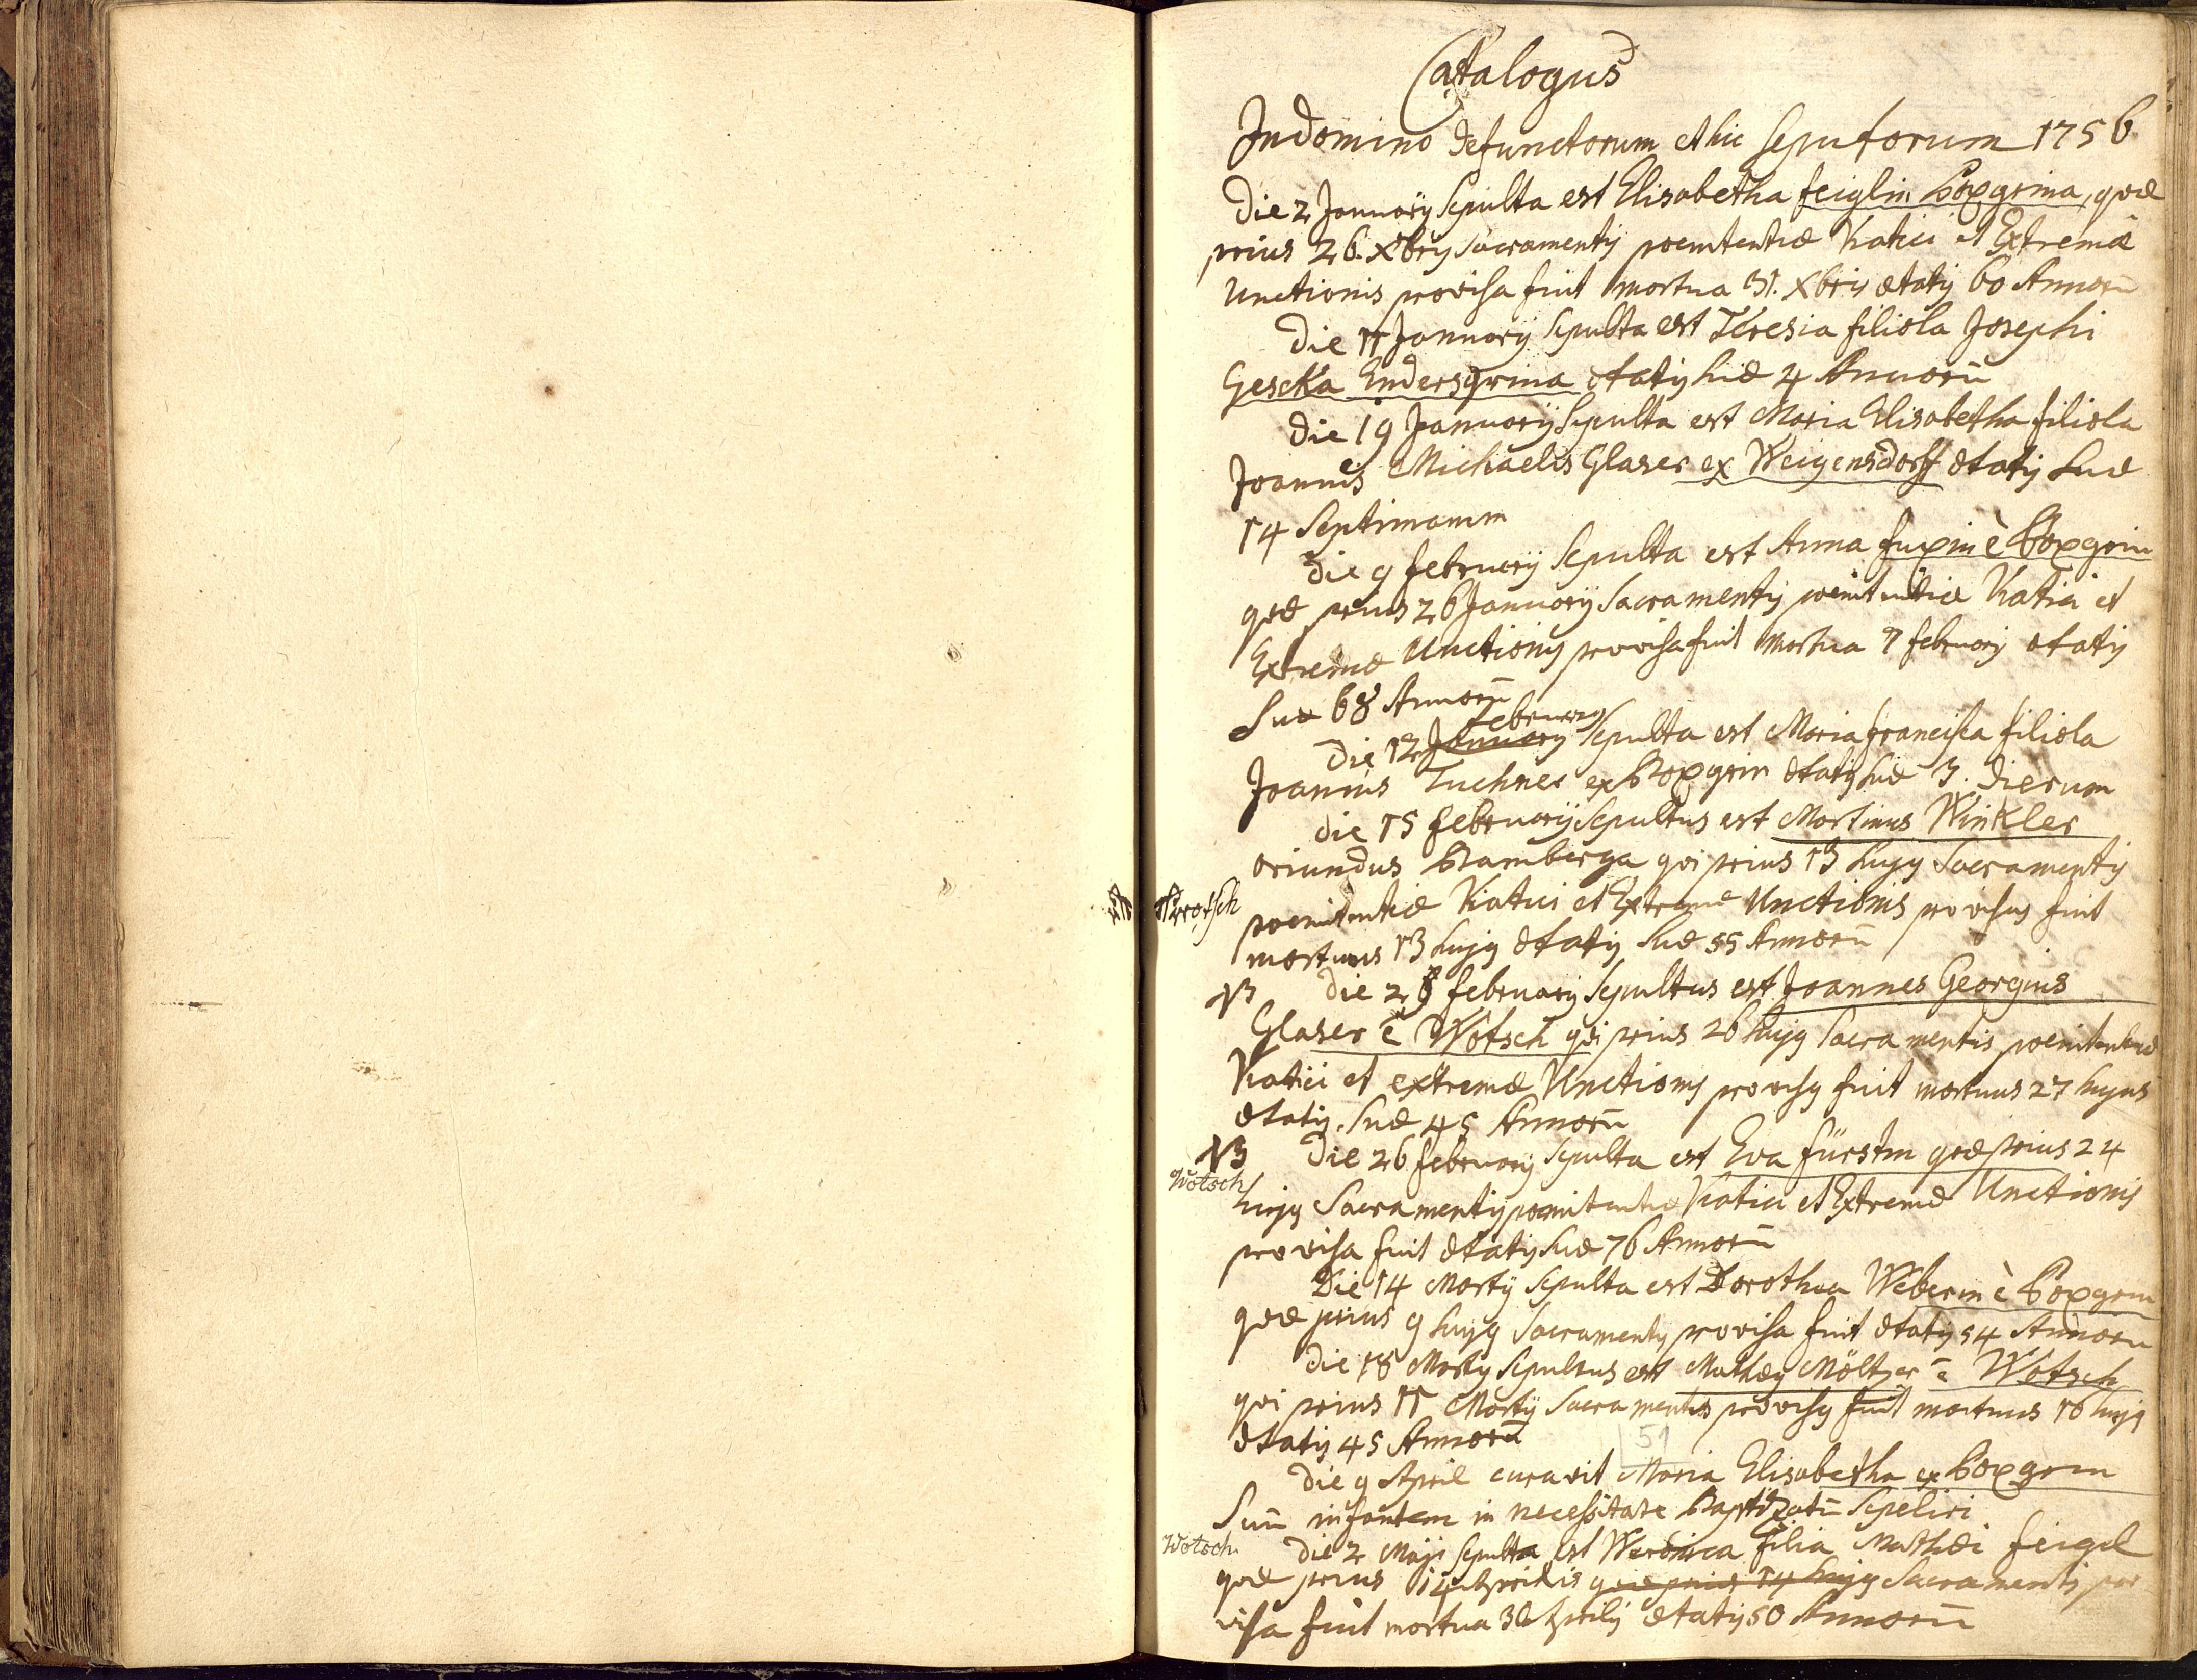 Catalogus
In domino defunctorum et hic sepultorum 1756
Die 2 Januarij sepulta est Elisabetha feiglin Boxgrina, qvæ
prius 26. Xbris sacramentis poenitentiæ Viatici et Extremæ
Unctionis provisa fuit mortua 31. Xbris ætatis 60 Annorū
Die 11 Januarij sepulta est Theresia filiola Josephi
Gescka Endersgrina ætatis suæ 4 Annorū
Die 19 Januarij sepulta est Maria Elisabetha filiola
Joannis Michaelis Glaser ex Weigensdorff ætatis suæ
14 Septimanum
Die 9 februarij sepulta est Anna fuxin è Boxgrin
qvæ prius 26 Januarij Sacramentis poenitentiæ Viatici et
Extremæ Unctionis provisa fuit mortua 7 februarij ætatis
suæ 68 Annorū
februarij
Die 12 Januarij sepulta est Maria francisca filiola
Joannis Tuchner ex Boxgrin ætatis suæ 3. dierum
Die 15 februarij sepultus est Martinus Winkler
oriundus Bamberga qvi prius 13 hujus Sacramentis
Wotsch
poenitentiæ Viatici et Extremæ Unctionis provisus fuit
mortuus 13 hujus ætatis suæ 55 Annorū
NB Die 28 februarij sepultus est Joannes Georgius
Glaser è Wotsch qvi prius 26 hujus sacramentis poenitentiæ
Viatici et extremæ Unctionis provisus fuit mortuus 27 hujus
ætatis suæ 45 Annorū
NB Die 26 februarij sepulta est Eva fürstin qvæ prius 24
Wotsch
hujus Sacramentis poenitentiæ Viatici et Extremæ Unctionis
provisa fuit ætatis suæ 76 Annorū
Die 14 Martij sepulta est Dorothea Weberin è Boxgrin
qvæ prius 9 hujus Sacramentis provisa fuit ætatis 54 Annorū
Die 18 Martij sepultus est Mathæus Möltzer è Wotsch
qvi prius 11 Martij Sacramentis provisus fuit mortuus 16 hujus
ætatis 45 Annorū
51
Die 9 April curavit Maria Elisabetha ex Boxgrin
Suū infantem in necessitate Baptizatū sepeliri
Wotsch Die 2 Maji sepulta est Weronica filia Mathæi feigel
qvæ prius 14 Aprilis qvæ prius 14 hujus Sacramentis pro
visa fuit mortua 30 Aprilis ætatis 50 Annorū